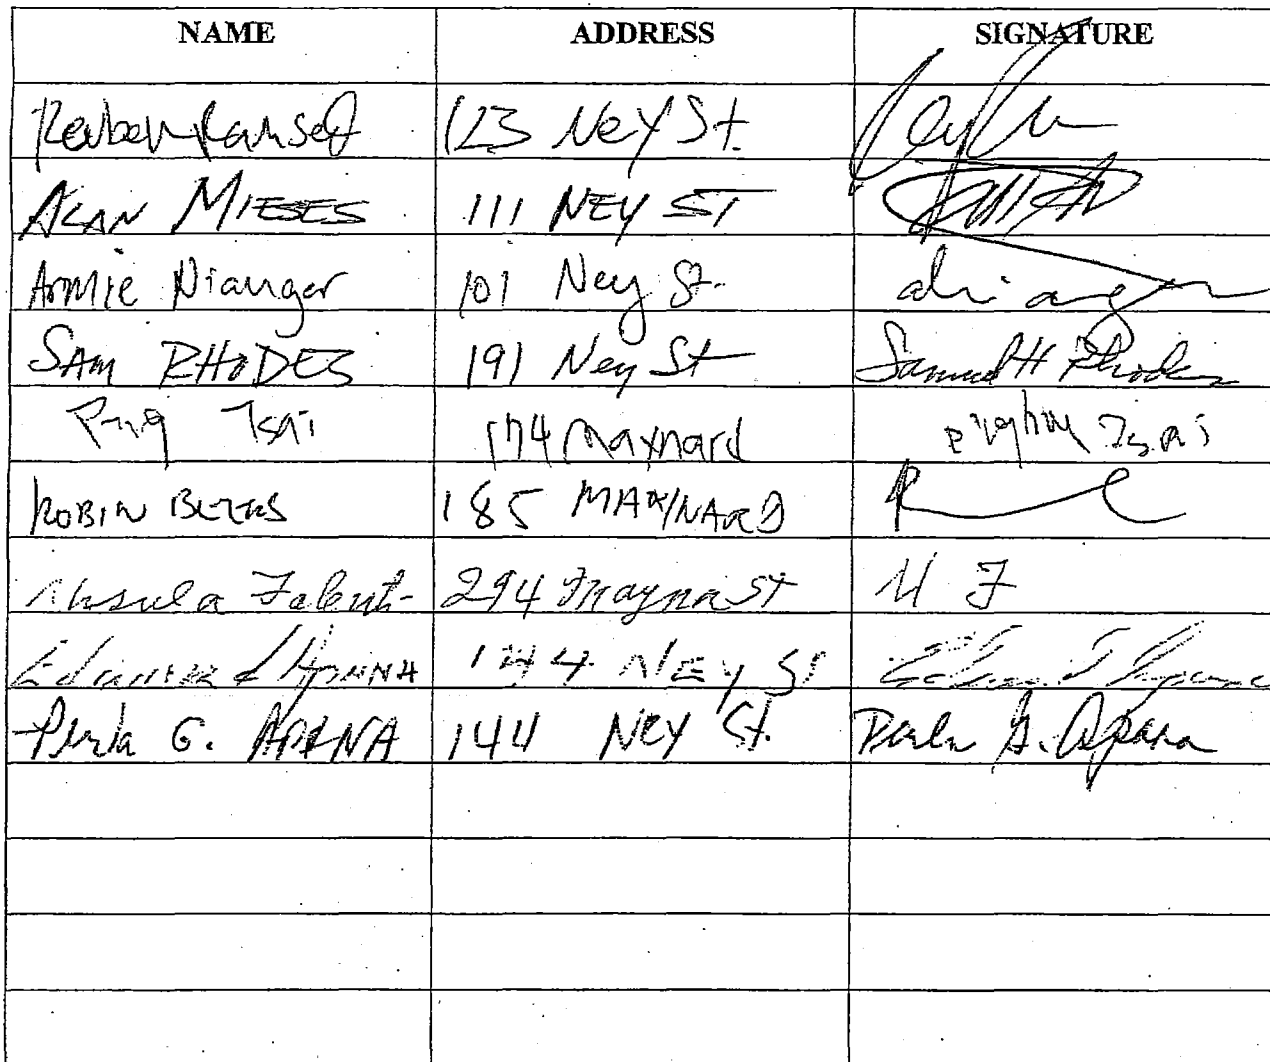 NAME ADDRESS SIGNATURE
Reuben 123 Ney St.
ALAN MIESES 111 NEY ST
Armie Nianger 101 Ney St.
SAM RHODES 191 Ney St Samuel H Rhodes
Ping Tsai 174 Maynard Tsai
ROBIN 185 MAYNARD
Ursula 294 St U F
144 NEY St
Perla G. APANA 144 NEY St. Perla G. Apana